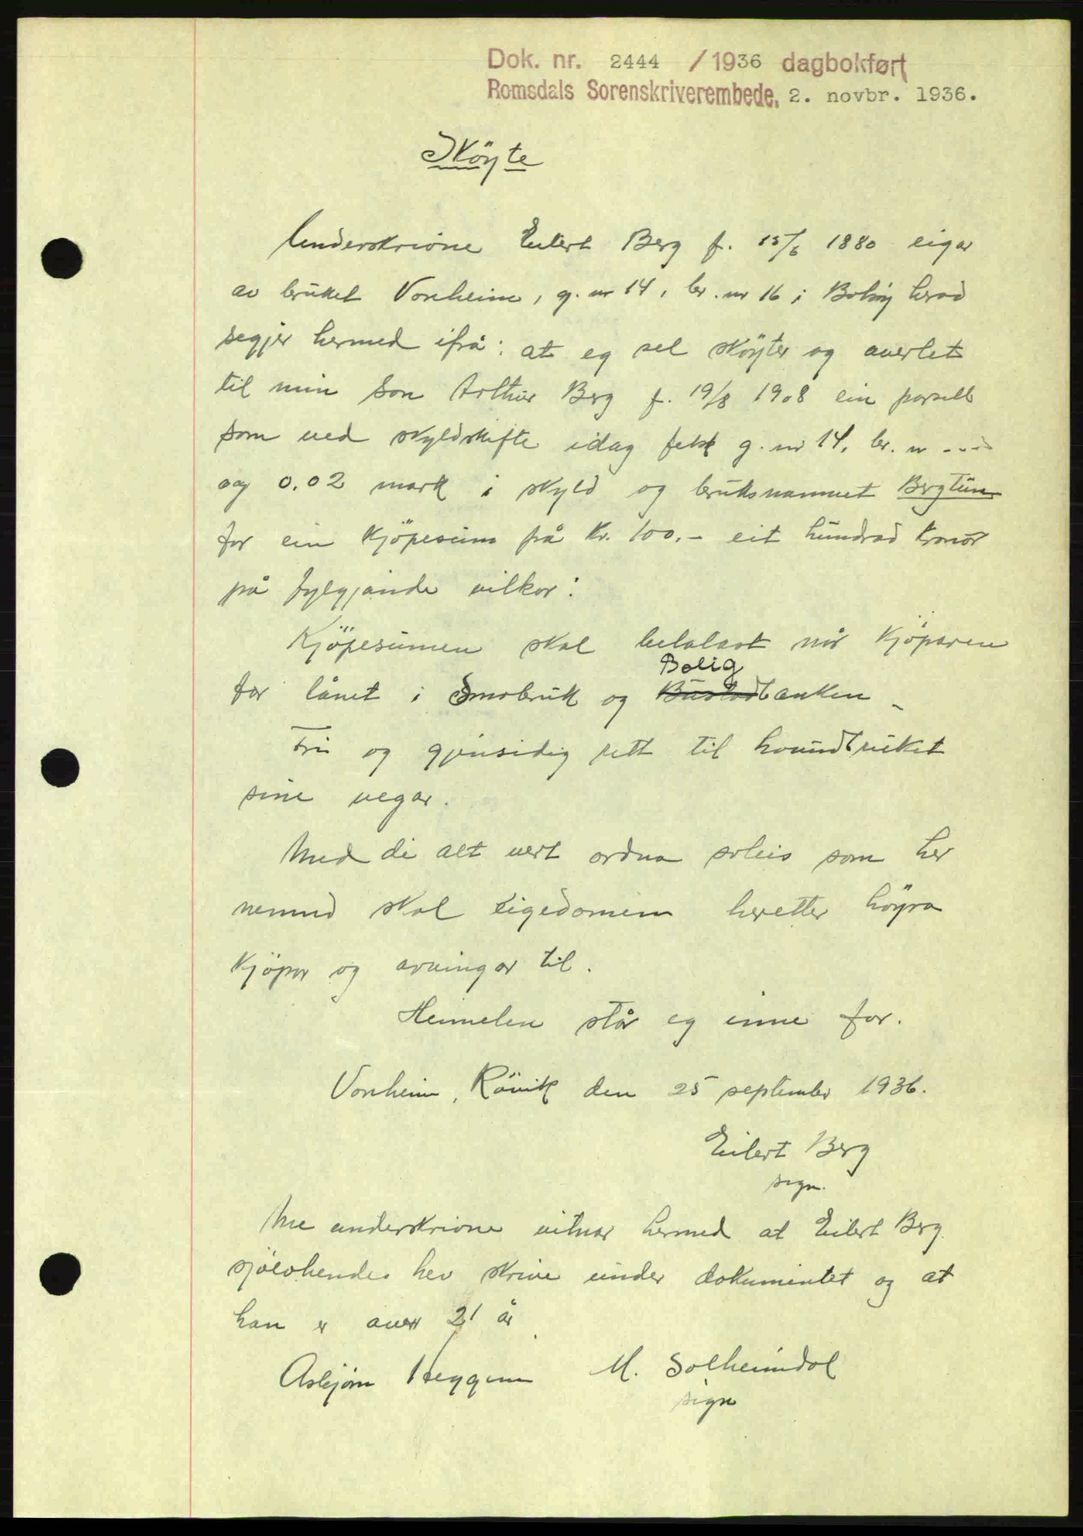 Dok. nr. 2444 / 1936 dagbokført
Romsdals Sorenskriverembede, 2. novbr. 1936.
Sköyte
Underskrivne Eilert Berg f. 15/6 1880 eigar
av bruket Vonheim, g. nr 14, br. nr 16 i Bolsöy herad
segjer hermed ifrå: at eg sel sköyter og averlet
til min Son Arthur Berg f. 19/8 1908 ein parsell
som ved skyldskifte idag fekk g. nr 14, br. nr ----
og 0.02 mark i skyld og bruksnamnet Bergtun
for ein kjöpesum frå kr. 100.- eit hundrad kronor
på fylgjande vilkor:
Kjöpesumen skal betalast når kjöparen
får lånet i Småbruk og Bustadbanken
Bolig
Fri og gjensidig rett til hovudbruket
sine vegar.
Med di alt vert ordna soleis som her
nemnd skal eigedomen heretter höyra
kjöpar og arvingar til.
Heimelen står eg inne for.
Vonheim, Rövik den 25 september 1936.
Eilert Berg
sign.
Me underskrivne vitnar hermed at Eilert Berg
sjölvhendes hev skrive under dokumentet og at
han er over 21 år
Asbjörn Heggem M. Solheimdal
sign